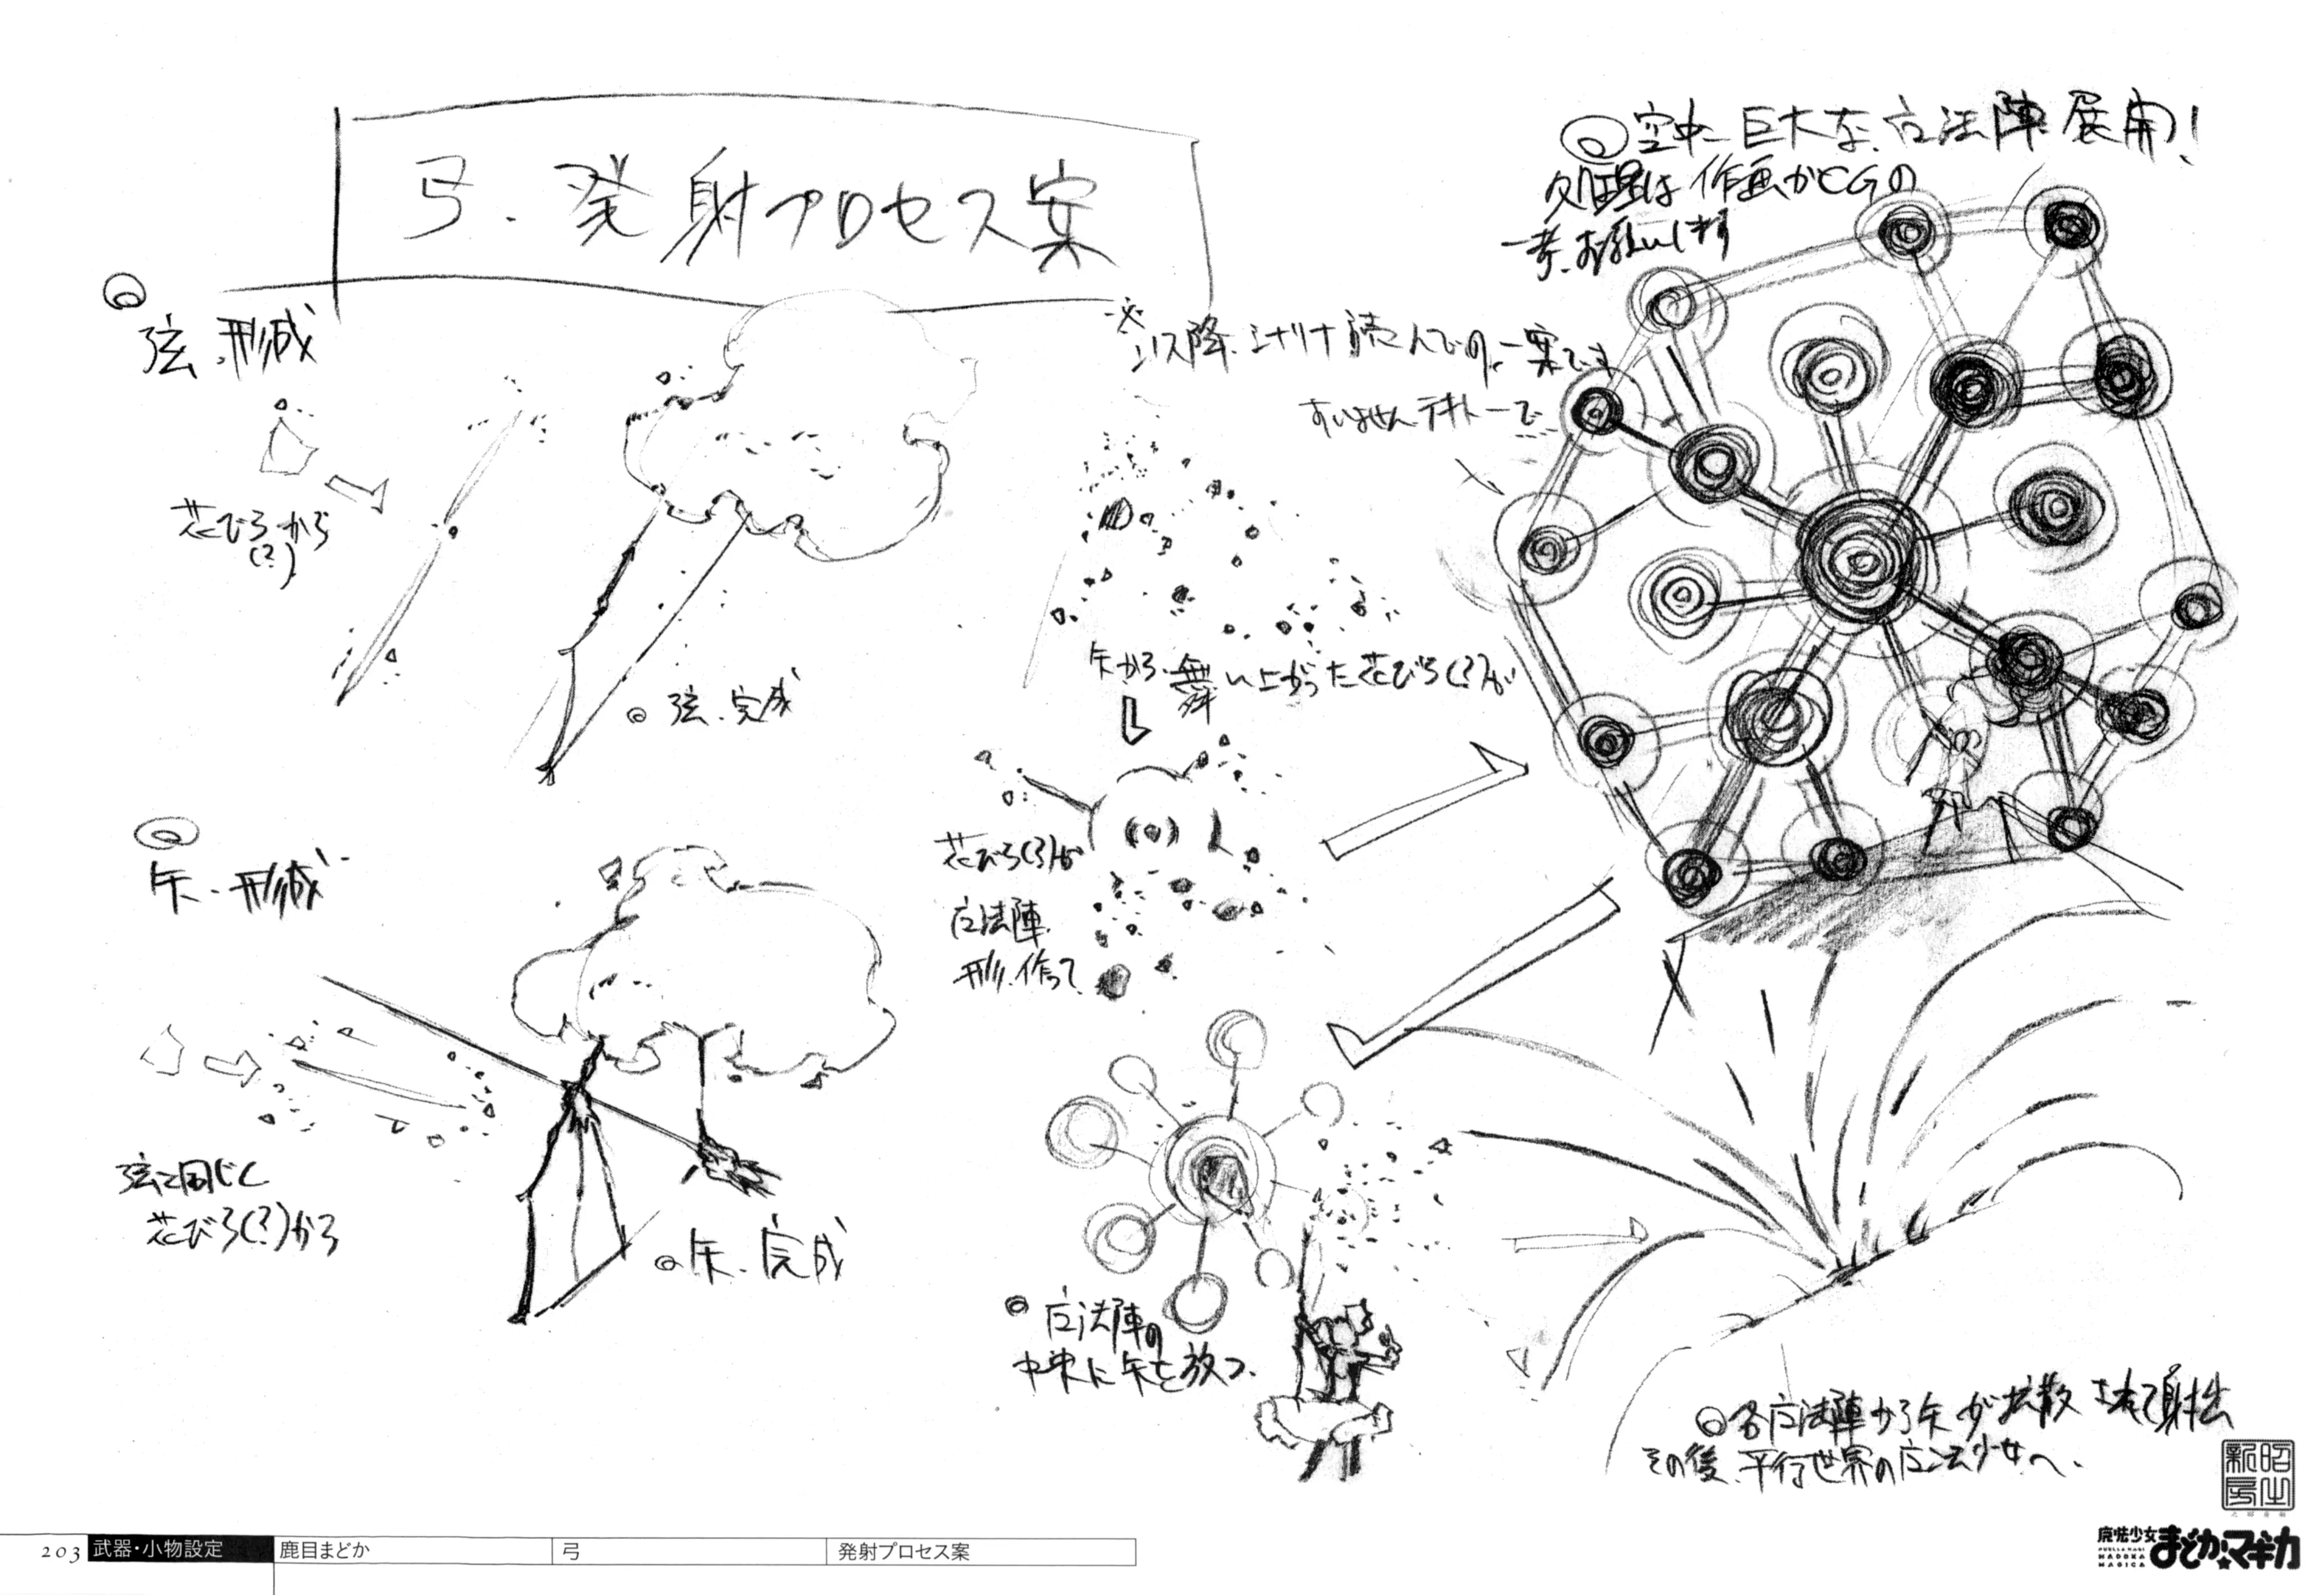 弓.発射プロセス案
◎弦.形成
花びらから
(?)
◎弦.完成
◎矢.形成
弦と同じく
花びら(?)から
◎矢.完成
※
以降.シナリオ読んでの.一案です
すいませんテキトーで
矢から.舞い上がった花びら(?)が
花びら(?)が
魔法陣.
形.作って
◎魔法陣の
中央に矢を放つ.
◎空中に巨大な.魔法陣.展開!
処理は作画かCGの
お願いします
◎各魔法陣から矢が拡散されて射出
その後.平行世界の魔法少女へ.
203 武器・小物設定 鹿目まどか 弓 発射プロセス案
新房昭之
魔法少女
PUELLA MAGI
MADOKA
MAGICA
まどか★マギカ